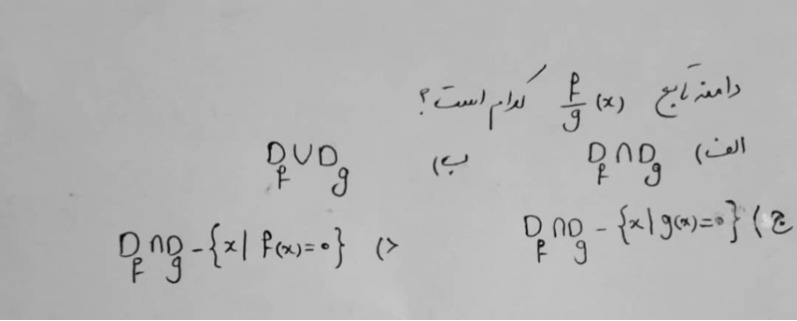 دامنه تابع f/g (x) کدام است؟
الف) D_f ∩ D_g ب) D_f ∪ D_g
ج) D_f ∩ D_g - {x | g(x) = 0} د) D_f ∩ D_g - {x | f(x) = 0}